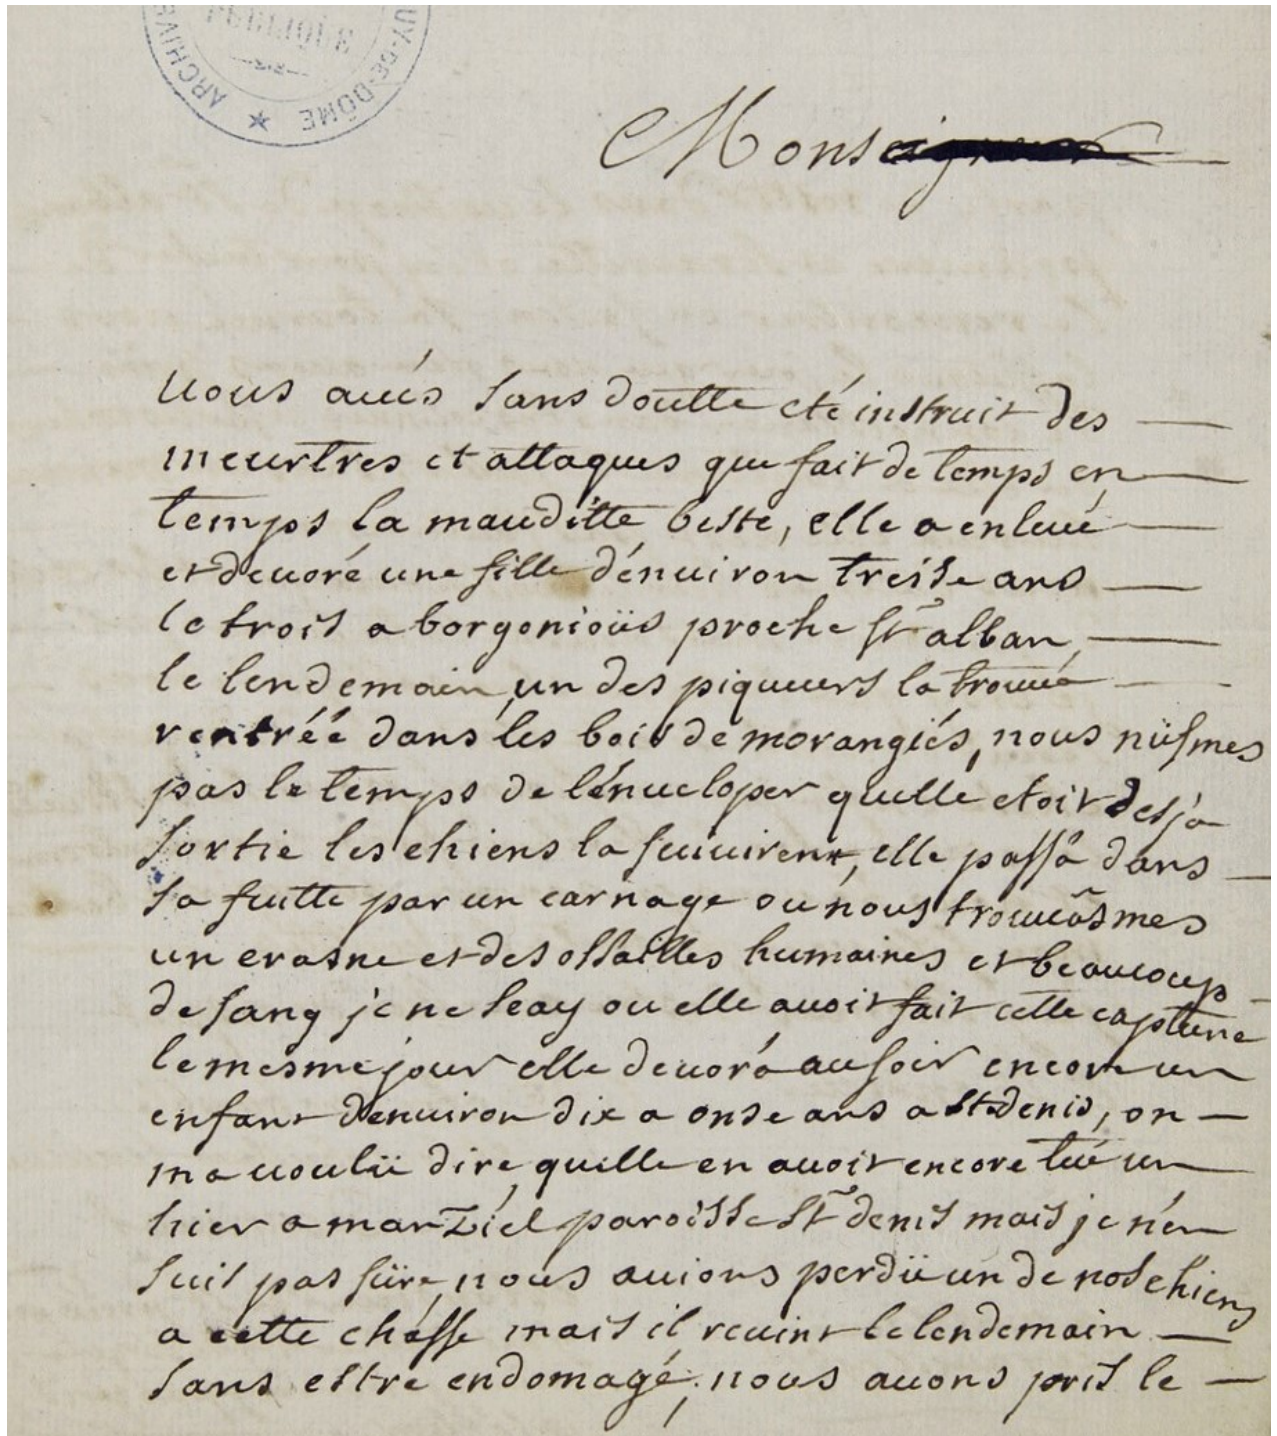 PUBLIQUE
ARCHIVES PUY-DE-DÔME
Monseigneur
Vous avés sans doutte eté instruit des
meurtres et attaques que fait de temps en
temps la mauditte beste, elle a enlevé
et devoré une fille dénviron treise ans
le trois a borgonioüs proche St alban,
le lendemain, un des piqueurs la trouvá
rentréé dans les bois de morangiés, nous nüsmes
pas le temps de lénveloper quelle etoit desja
sortie les chiens la suivirent, elle passá dans
sa fuitte par un carnage ou nous trouvâsmes
un crasne et des ossailles humaines et beaucoup
de sang je ne scay ou elle avoit fait cette capture
le mesme jour elle devorá au soir encore un
enfant dénviron dix a onse ans a St denis, on
ma voulü dire, quelle en avoit encore tüé un
hier a marziel paroisse St denis mais je nén
suis pas süre, nous avions perdü un de nos chiens
a cette chásse mais il revint le lendemain
sans estre endomagé, nous avons pris le